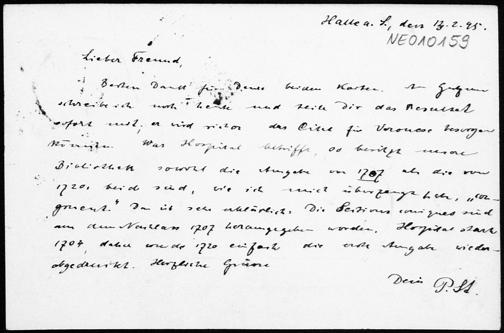 Halle a. S., den 13.2.95.
NE010159
Lieber Freund,
Besten Dank für Deine beiden Karten. An
schreibe ich noch heute und teile Dir das Resultat
sofort mit, er wird sicher das Citat für Veronese besorgen
können. Was Hospital betrifft, so besitzt unsere
Bibliothek sowohl die Ausgabe von 1707 als die von
1720, beid sind, wie ich mich überzeugt habe,
Das ist sehr erklärlich. Die Sections coniques sind
aus dem Nachlass 1707 herausgegeben worden, Hospital starb
1704, daher wurde 1720 einfach die erste Ausgabe wieder-
abgedruckt. Herzliche Grüsse
Dein P. St.